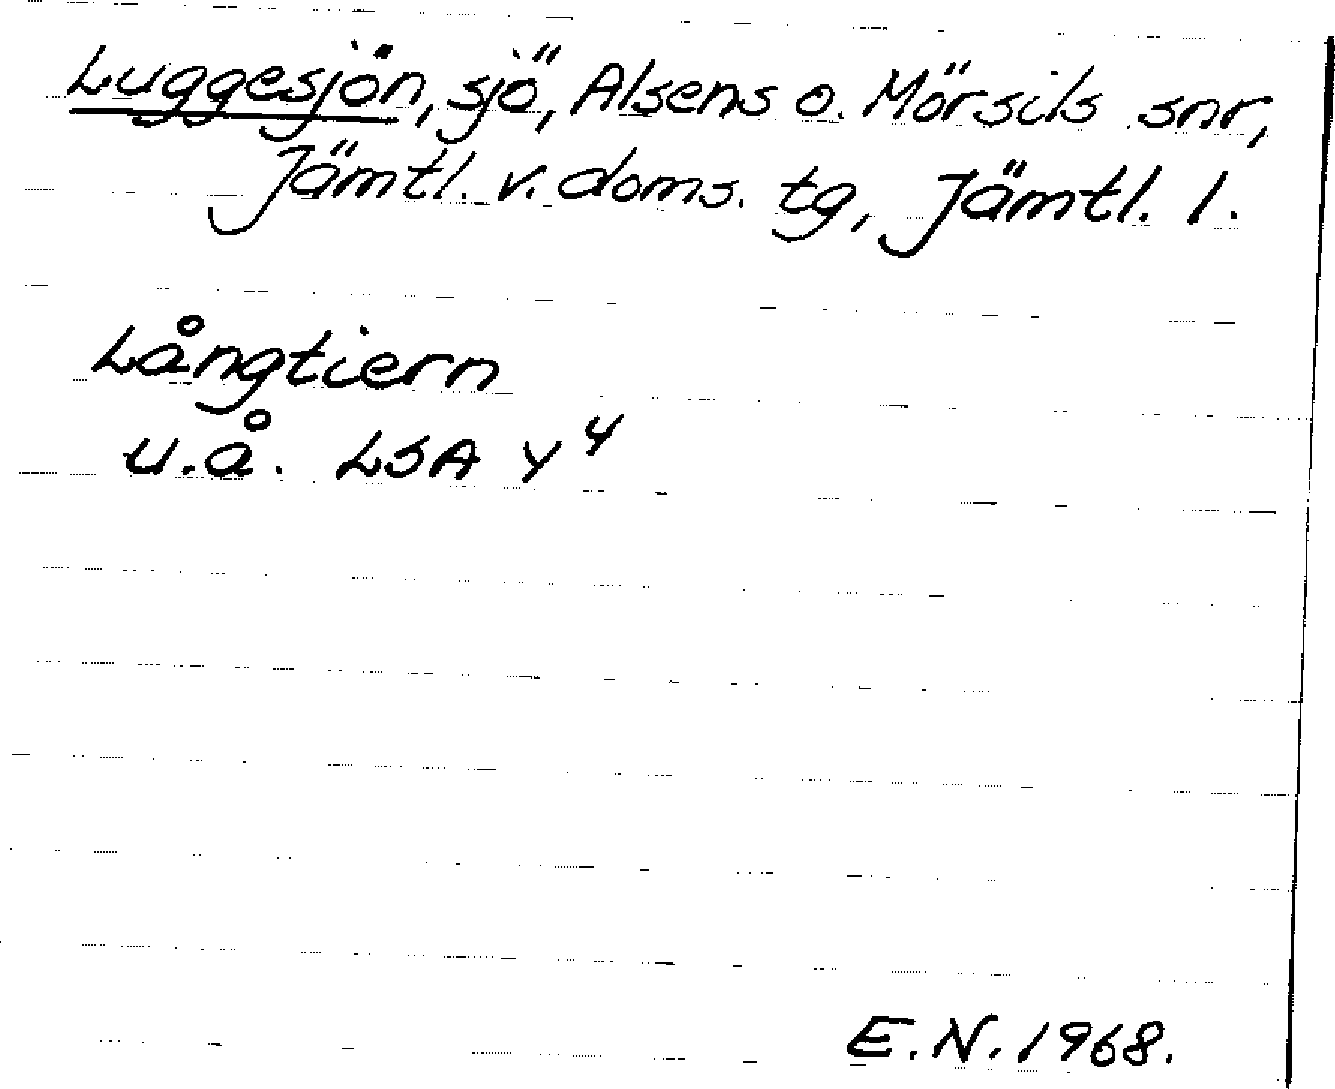 Luggesjön, sjö, Alsens o. Mörsils snr,
Jämtl. v. doms. tg, Jämtl. l.
Långtiern
u.å. LSA Y4
E.N. 1968.